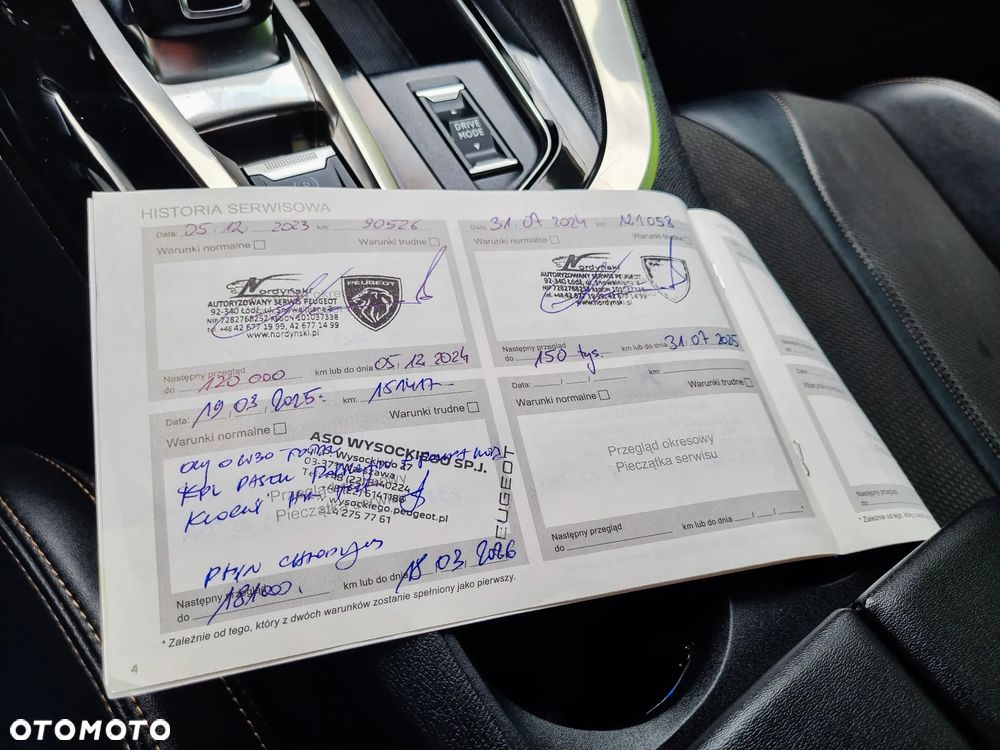 DRIVE
MODE
HISTORIA SERWISOWA
Data: 05.12.2023 km: 90526
Warunki normalne Warunki trudne
Nordyński
PEUGEOT
AUTORYZOWANY SERWIS PEUGEOT
92-340 Łódź, ul.
NIP 7282768252 REGON 101037338
tel. +48 42 677 19 99, 42 677 14 99
www.nordynski.pl
Następny przegląd
do 120 000 km lub do dnia 05.12.2024
Data: 31.07.2024 km: 121058
Warunki normalne Warunki trudne
Nordyński
AUTORYZOWANY SERWIS PEUGEOT
92-340 Łódź, ul.
NIP 7282768252 REGON
tel. +48 42 677 19 99, 42 677 14 99
www.nordynski.pl
Następny przegląd
do 150 tys. km lub do dnia 31.07.2025
Data: 19.03.2025 km: 151417
Warunki normalne Warunki trudne
ASO WYSOCKIEGO SP.J.
Wysockiego
Warszawa
wysockiego.peugeot.pl
275 77 61
PEUGEOT
OLEJ 0W30
KPL PASEK
PŁYN CHŁODZĄCY
Następny przegląd
do 181000. km lub do dnia 18.03.2026
Data: / / km:
Warunki normalne Warunki trudne
Przegląd okresowy
Pieczątka serwisu
Następny przegląd
do km lub do dnia / / *
* Zależnie od tego, który z dwóch warunków zostanie spełniony jako pierwszy.
4
OTOMOTO